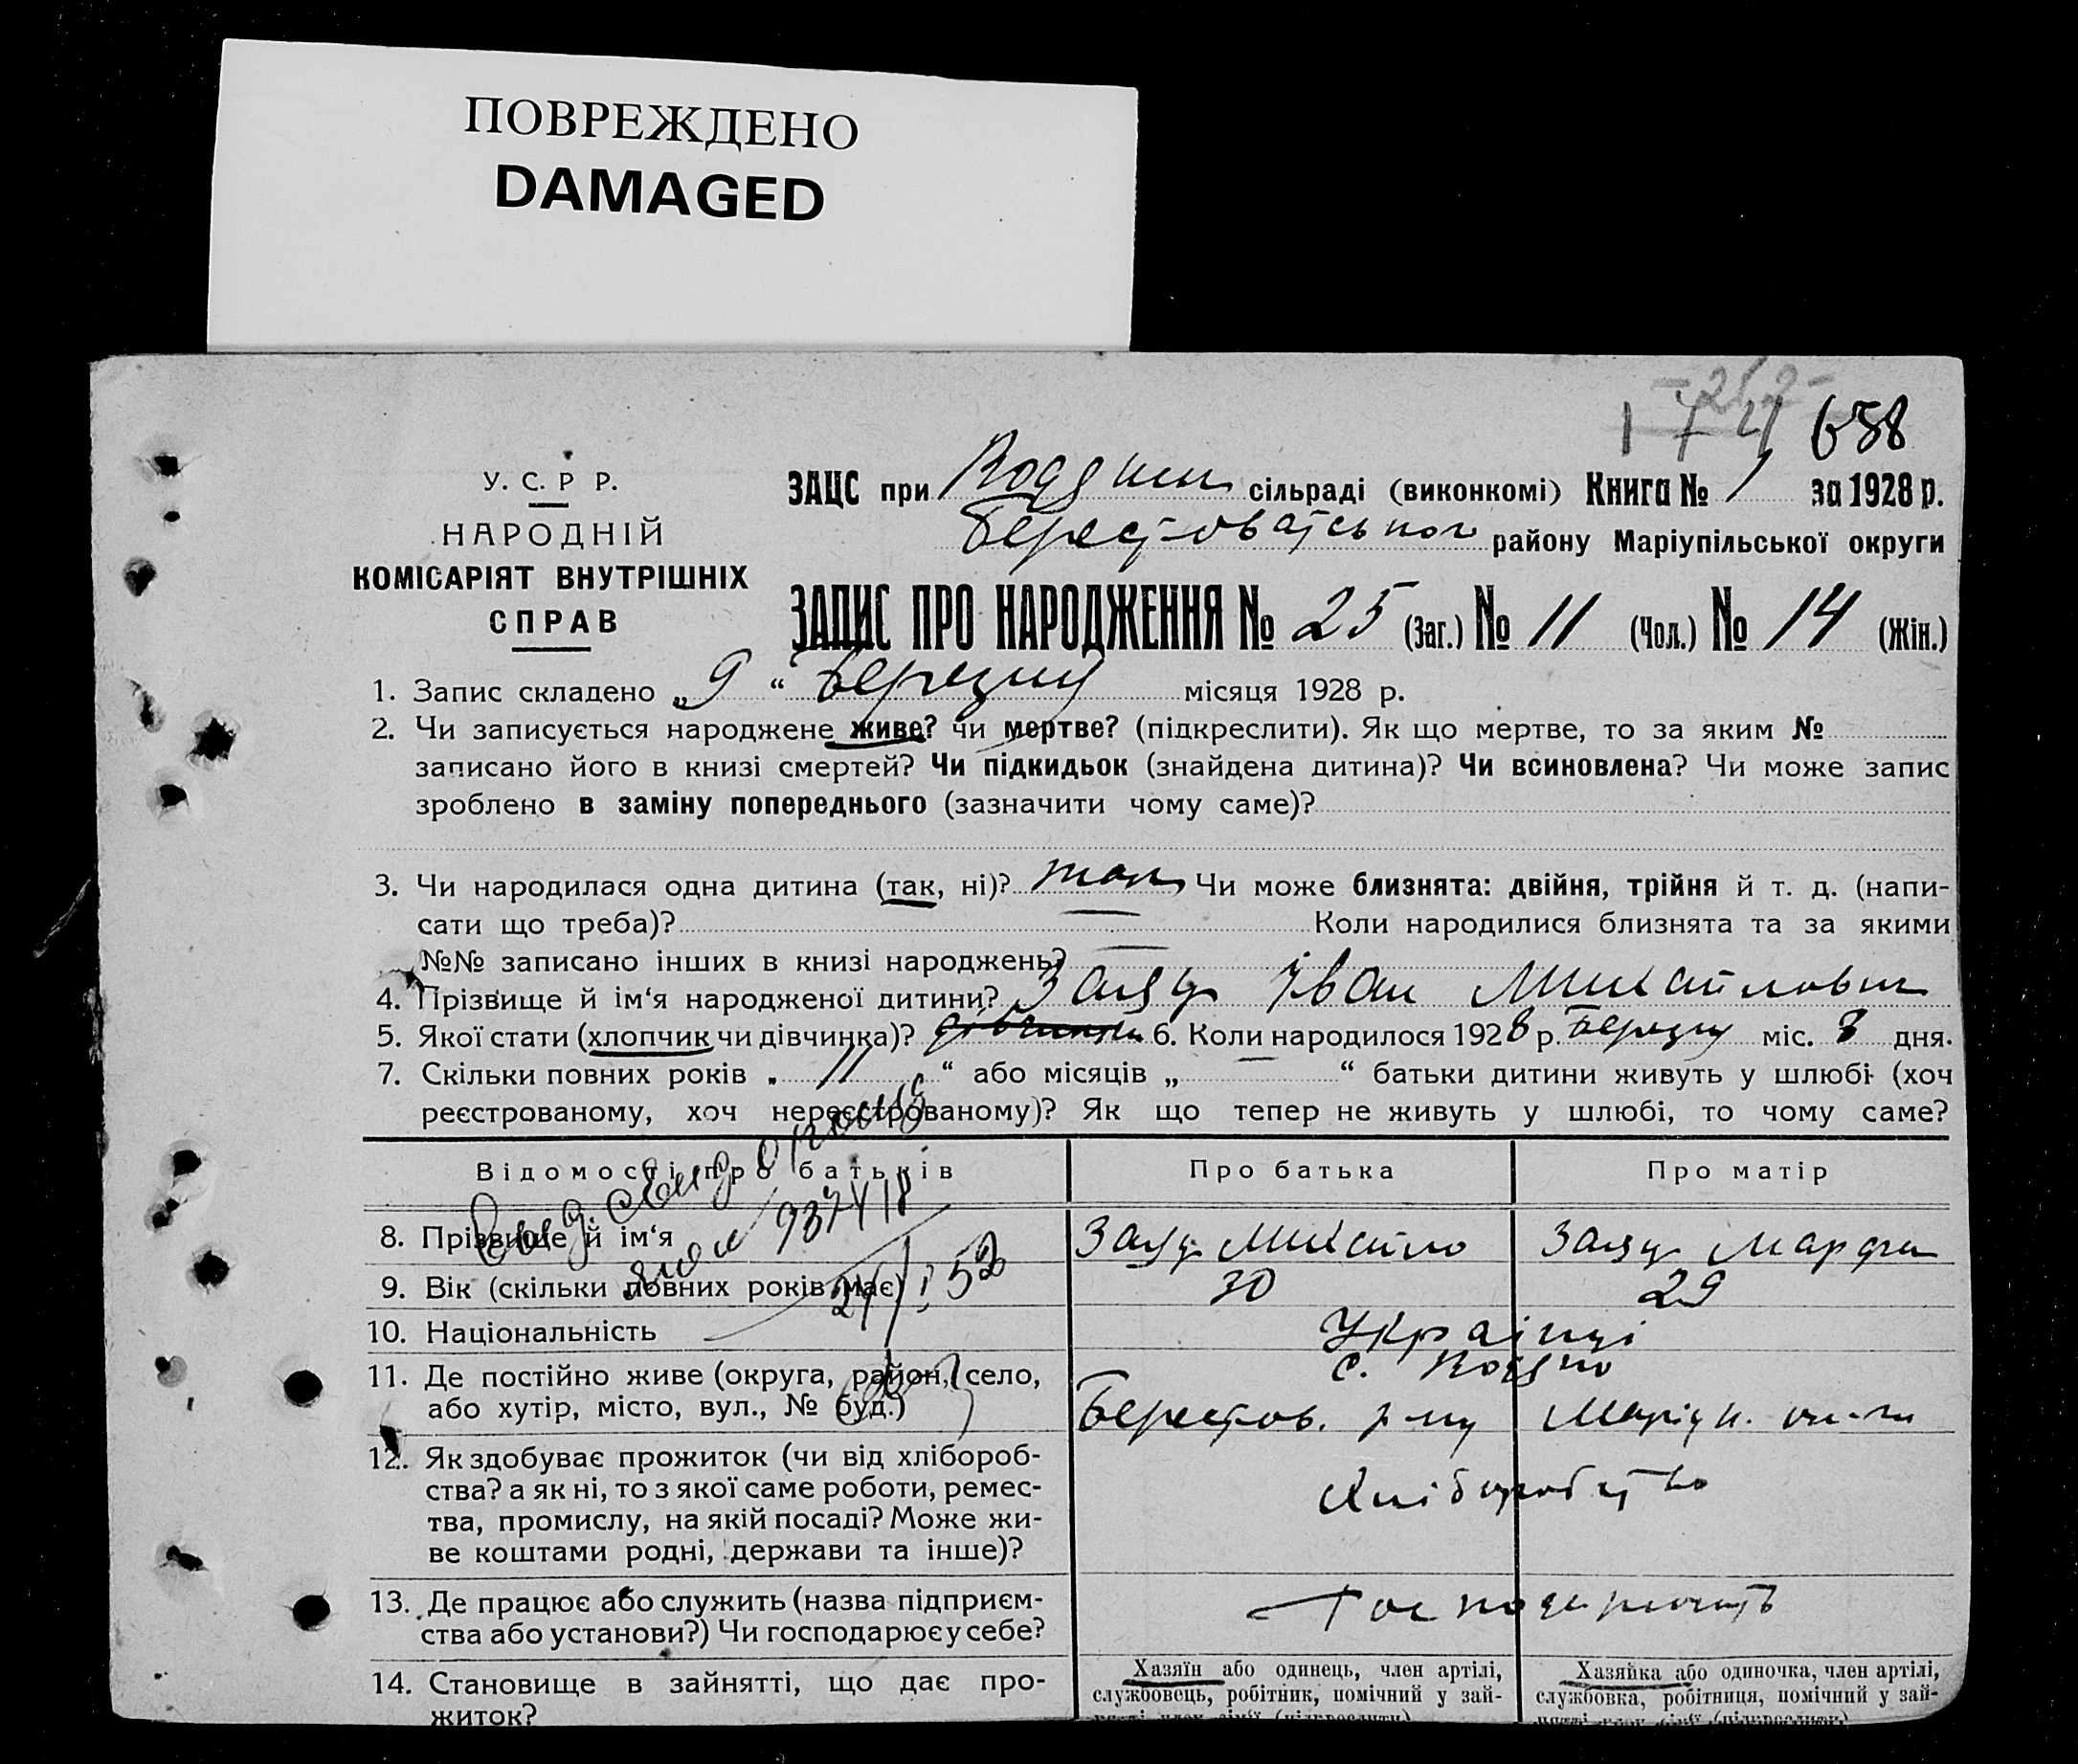 ПОВРЕЖДЕНО
DAMAGED
1741 688
У. С. Р Р.
НАРОДНІЙ
КОМІСАРІЯТ ВНУТРІШНІХ
СПРАВ
ЗАЦС при Водян сільраді (виконкомі) Книга № 1 за 1928 р.
Берестоватського району Маріупільської округи
ЗАПИС ПРО НАРОДЖЕННЯ № 25 (Заг.) № 11 (Чол.) № 14 (Жін.)
1. Запис складено „ 9 “ Березня місяця 1928 р.
2. Чи записується народжене живе? чи мертве? (підкреслити). Як що мертве, то за яким №
записано його в книзі смертей? Чи підкидьок (знайдена дитина)? Чи всиновлена? Чи може запис
зроблено в заміну попереднього (зазначити чому саме)?
3. Чи народилася одна дитина (так, ні)? так Чи може близнята: двійня, трійня й т. д. (напи-
сати що треба)? — Коли народилися близнята та за якими
№№ записано інших в книзі народжень? —
4. Прізвище й ім‘я народженої дитини? Заяць Іван Михайлович
5. Якої стати (хлопчик чи дівчинка)? дівчинка 6. Коли народилося 1928 р. Березня міс. 8 дня.
7. Скільки повних років „ 11 “ або місяців „ — “ батьки дитини живуть у шлюбі (хоч
реєстрованому, хоч нереєстрованому)? Як що тепер не живуть у шлюбі, то чому саме?
Відомості про батьків Про батька Про матір
8. Прізвище й ім‘я Заяць Михайло Заяць Марфа
9. Вік (скільки повних років має) 30 29
10. Національність Українці
11. Де постійно живе (округа, район, село, с. Водяно
або хутір, місто, вул., № буд.) Берестов. р-ну Маріуп. окр-ги
12. Як здобуває прожиток (чи від хлібороб-
ства? а як ні, то з якої саме роботи, ремес- Хліборобство
тва, промислу, на якій посаді? Може жи-
ве коштами родні, держави та інше)?
13. Де працює або служить (назва підприєм- Господарюють
ства або установи?) Чи господарює у себе?
14. Становище в зайнятті, що дає про- Хазяїн або одинець, член артілі, Хазяйка або одиночка, член артілі,
житок? службовець, робітник, помічний у зай- службовка, робітниця, помічний у зай-